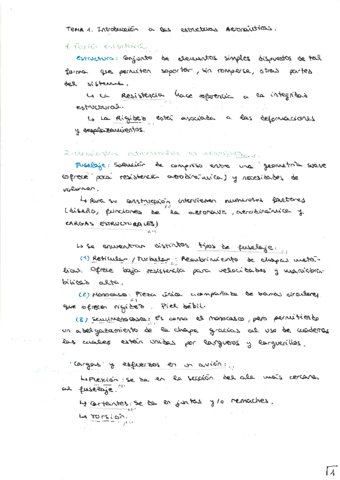 TEMA 1. Introducción a las estructuras Aeronáuticas.
Estructura: Conjunto de elementos simples dispuestos de tal
forma que permiten soportar, sin romperse, otras partes
del sistema.
↳ La Resistencia hace referencia a la integridad
estructural.
↳ La Rigidez está asociada a las deformaciones
y desplazamientos.
Fuselaje: Solución de compromiso entre una geometría suave
(ofrece poca resistencia aerodinámica) y necesidades de
volumen.
↳ Para su construcción intervienen numerosos factores
(diseño, funciones de la aeronave, aerodinámica y
CARGAS ESTRUCTURALES)
↳ Se encuentran distintos tipos de fuselaje:
(1) Reticular / Tubular: Recubrimiento de chapas metá-
licas. Ofrece baja resistencia para velocidades y
alta.
(2) Monocasco: Pieza única acompañada de barras circulares
que ofrecen rigidez. Piel débil.
(3) Semimonocasco: Es como el monocasco, pero permitiendo
un adelgazamiento de la chapa gracias al uso de cuadernas
las cuales están unidas por largueros y larguerillos.
Cargas y esfuerzos en un avión:
↳ Flexión: se da en la sección del ala más cercana
al fuselaje.
↳ Cortantes: Se da en juntas y/o remaches.
↳ Torsión.
1